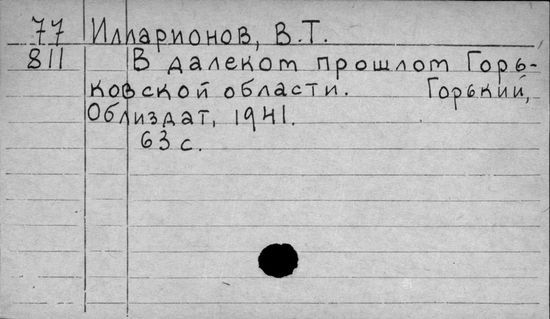 77 Илларионов, В.Т.
811 В далеком прошлом Горь-
ковской области. Горький,
Облиздат, 1941.
63 с.